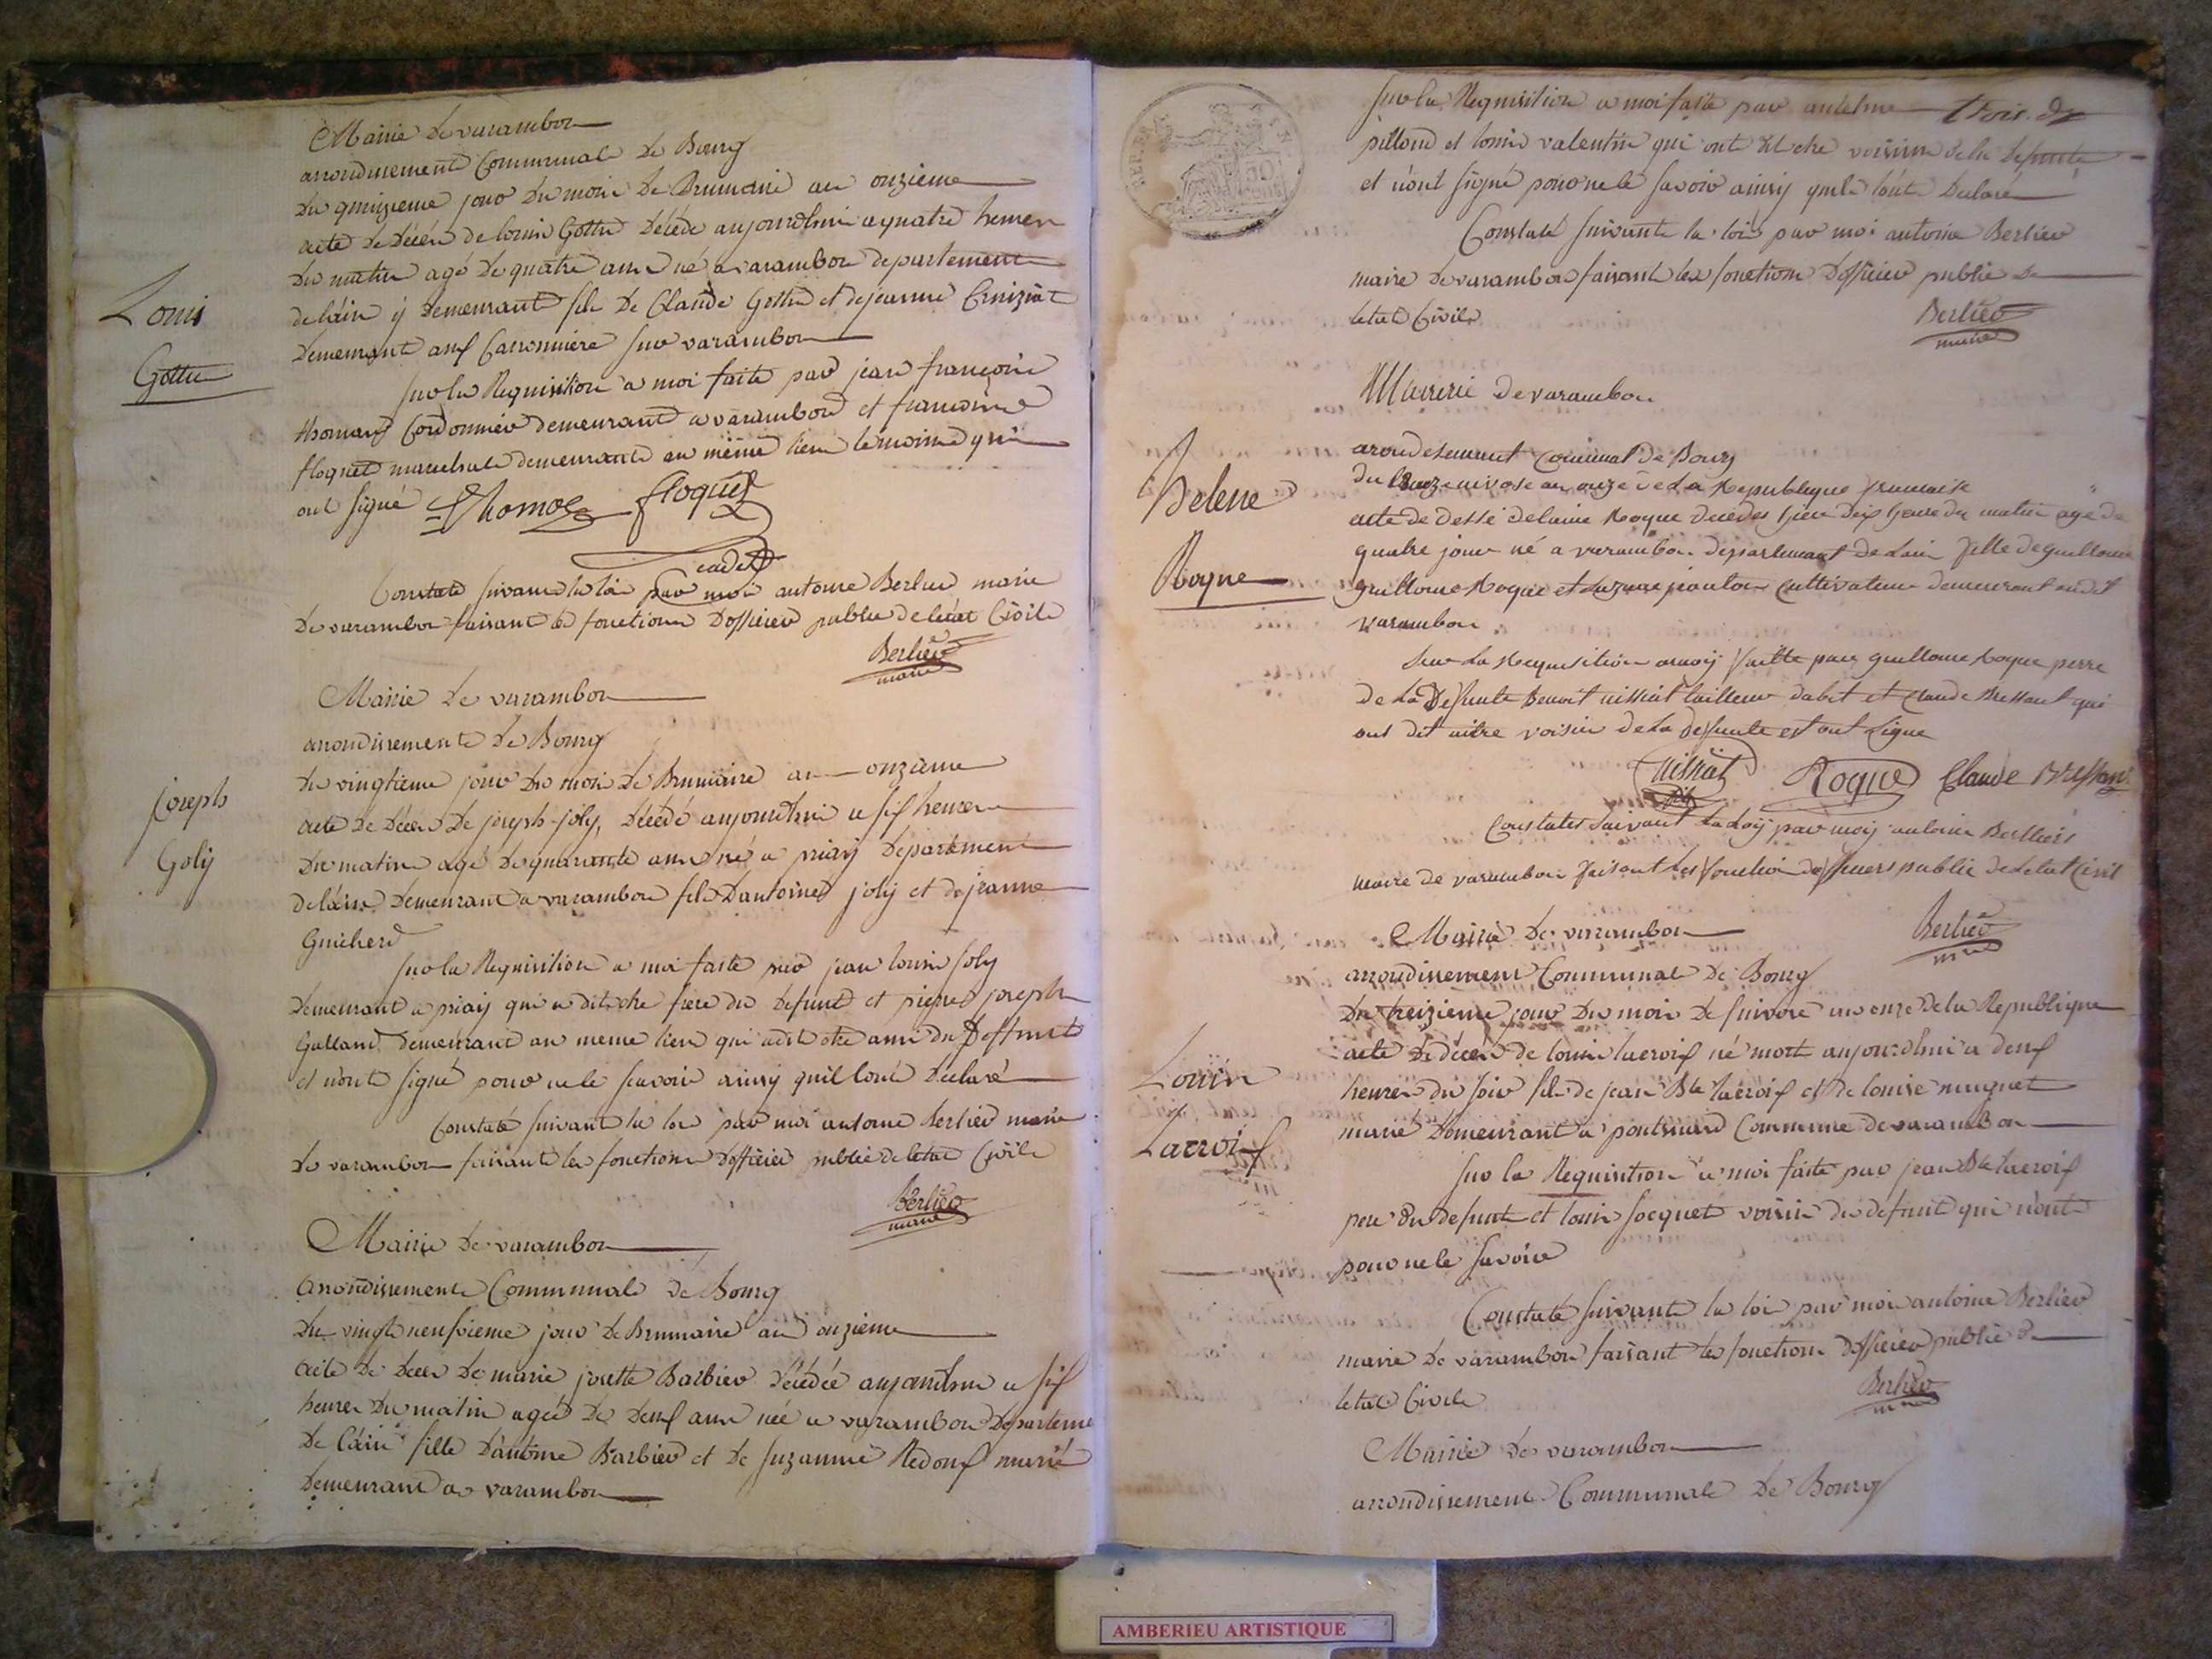 Mairie de varambon
arrondissement Communal de Bourg
du quinzieme jour du mois de Brumaire an onzieme
acte de décès de louis Gottu décédé aujourdhui a quatre heures
du matin agé de quatre ans né a varambon departement
de láin y demeurant fils de Claude Gottu et de jeanne Cruiziat
demeurant aux Carronnière sur varambon
Louis
Gottu
sur la Requisition a moi faite par jean françois
thomas Cordonnier demeurant a varambon et françois
floquet marechal demeurant au même lieu temoins qui
ont signé Thomas floquet
cadet
Constaté suivant la loi par moi antoine Berlier maire
de varambon faisant les fonctions dofficier public de létat Civile
Berlier
maire
Mairie de varambon
arrondissement de Bourg
du vingtieme jour du mois de Brumaire an onzieme
acte de décès de joseph joly, décédé aujourdhui a six heures
du matin agé de quarante ans né a priay departement
de láin demeurant a varambon fils dantoine joly et de jeanne
Guicherd
joseph
Goly
sur la Requisition a moi faite par jean louis joly
demeurant a priay qui a dit etre frere du defunt et pierre joseph
Galland demeurant au meme lieu qui a dit etre ami du deffunt
et n'ont signé pour ne le scavoir ainsy quil lont déclaré
Constaté suivant la loi par moi antoine Berlier maire
de varambon faisant les fonctions dofficier public de letat Civile
Berlier
maire
Mairie de varambon
arrondissement Communale de Bourg
du vingt neufvieme jour de Brumaire an onzieme
acte de décès de marie josette Barbier décédée aujourdhui a six
heures du matin agée de deux ans née a varambon departeme
de láin fille dántoine Barbier et de suzanne Redoux marié
demeurant a varambon
sur la Requisition a moi faite par antelme
pittond et louis valentin qui ont dit etre voisins de la defunte
et n'ont signé pour ne le savoir ainsy quils lont declaré
Constaté suivant la loi par moi antoine Berlier
maire de varambon faisant les fonctions dofficier public de
letat Civile
Berlier
maire
Mairerie de varambon
arondesement Communal de Bourg
du douze nivose an onze de La Republique francaise
acte de dessé delaine Roque decedes hier dix heure du matin age de
quatre jour né a varambon departemant de Lain fille de guilloume
guilloume Roque et Suzanne jeanton Cultivateur demeurant au dit
varambon
Helene
Roque
Sur La Requisition a moy faitte par guilloume Roque perre
de La defunte Benoit nissiat tailleur dabit et Claude Bressant qui
ont dit aitre voisin de La defunte et ont Signe
nissiat Roque Claude Bressant
Constates Suivant La Loy par moy antoine Berllier
maire de varambon faisant Les fonction doffisiers public de Letat Civil
Berlier
maire
Mairie de varambon
arrondissement Communal de Bourg
du treizieme jour du mois de nivose an onze de la Republique
acte de décès de louis lacroix né mort aujourdhui a deux
heures du soir fils de jean Bte lacroix et de louise muguet
marié demeurant a pontruard Commune de varambon
Louis
Lacroix
sur la Requisition a moi faite par jean Bte lacroix
pere du defunt et louis jocquet voisin du defunt qui n'ont
pour ne le savoir
Constaté suivant la loi par moi antoine Berlier
maire de varambon faisant les fonctions dofficier public de
letat Civile
Berlier
maire
Mairie de varambon
arrondissement Communale de Bourg
AMBERIEU ARTISTIQUE